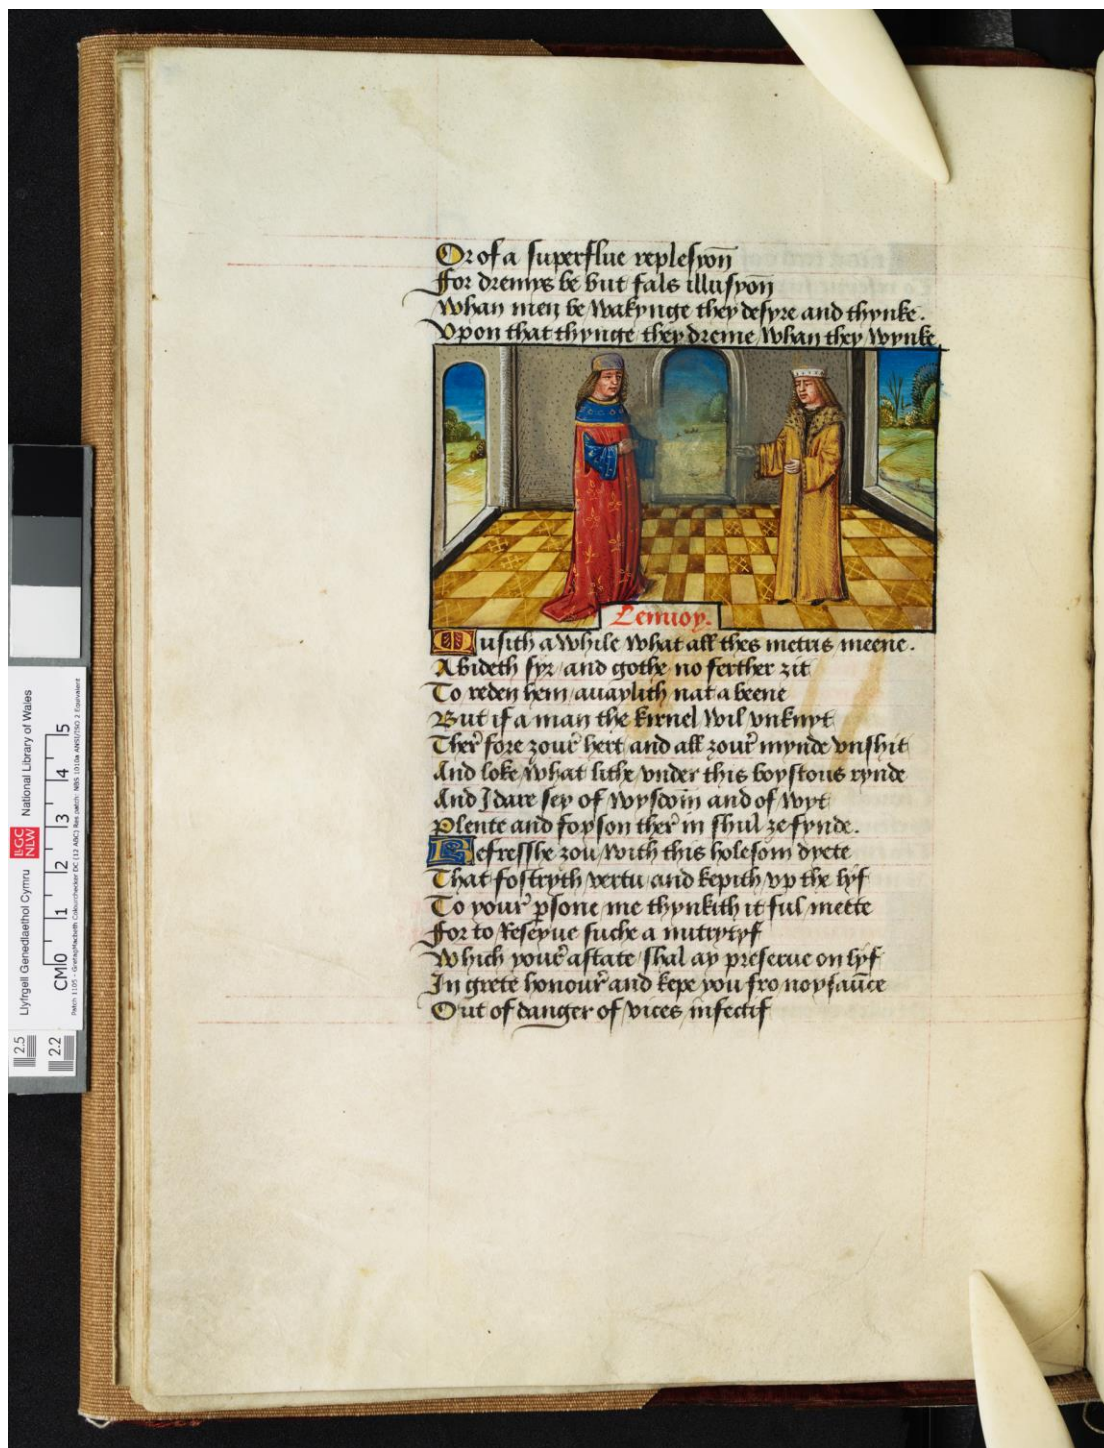 Or of a superflue replesyon̄
For dremys be but fals illusyon̄
Whan men be wakynge they desyre and thynke.
Vpon that thynge they dreme whan they wynke
Lenuoy.
Musith a while what all thes metris meene.
Abideth syr and gothe no ferther zit
To reden hem auaylith nat a beene
But if a man the kirnel wil vnknyt
Ther fore zour hert and all zour mynde vnshit
And loke what lithe vnder this boystous rynde
And I dare sey of wysdom and of wyt
Plente and foyson ther in shul ze fynde.
Refresshe zou with this holesom dyete
That fostryth vertu and kepith vp the lyf
To your psone me thynkith it ful mette
For to Reseyue suche a nutrytyf
Which your astate shal ay preserue on lyf
In grete honour and kepe you fro noysaūce
Out of danger of vices infectif
Llyfrgell Genedlaethol Cymru National Library of Wales
LLGC
NLW
CM 0 1 2 3 4 5
2.5
2.2